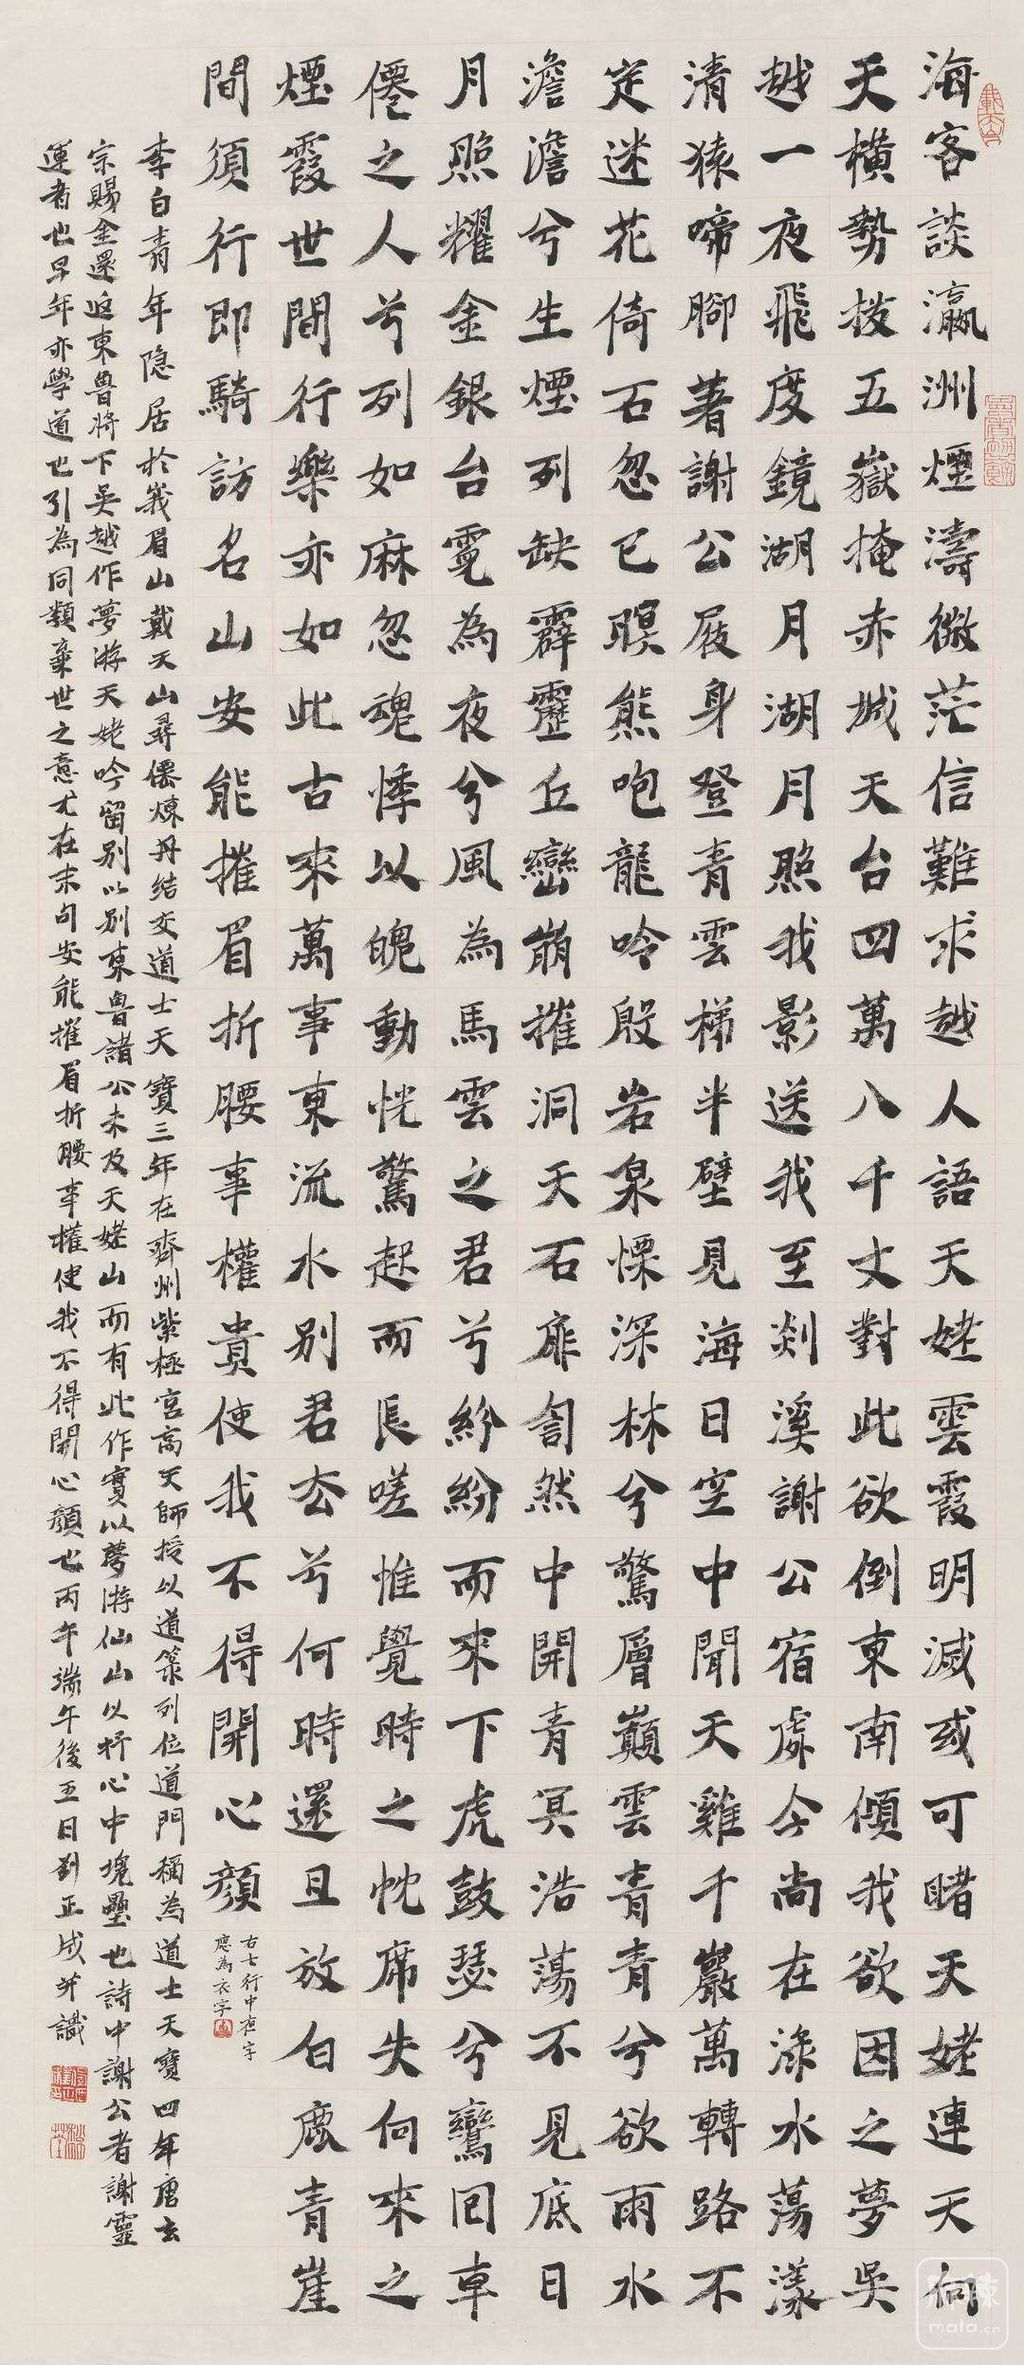 海客談瀛洲煙濤微茫信難求越人語天姥雲霞明滅或可睹天姥連天向
天橫勢拔五嶽掩赤城天台四萬八千丈對此欲倒東南傾我欲因之夢吳
越一夜飛度鏡湖月湖月照我影送我至剡溪謝公宿處今尚在淥水蕩漾
清猿啼腳著謝公屐身登青雲梯半壁見海日空中聞天雞千巖萬轉路不
定迷花倚石忽已暝熊咆龍吟殷岩泉慄深林兮驚層巔雲青青兮欲雨水
澹澹兮生煙列缺霹靂丘巒崩摧洞天石扉訇然中開青冥浩蕩不見底日
月照耀金銀台霓為夜兮風為馬雲之君兮紛紛而來下虎鼓瑟兮鸞回車
僊之人兮列如麻忽魂悸以魄動恍驚起而長嗟惟覺時之枕席失向來之
煙霞世間行樂亦如此古來萬事東流水別君去兮何時還且放白鹿青崖
間須行即騎訪名山安能摧眉折腰事權貴使我不得開心顏
右七行中夜字
應為衣字
李白青年隐居於峩眉山戴天山尋僊煉丹結交道士天寶三年在齊州紫極宮高天師授以道箓列位道門稱為道士天寶四年唐玄
宗賜金還返東魯將下吳越作夢游天姥吟留別以別東魯諸公未及天姥山而有此作實以夢游仙山以抒心中塊壘也詩中謝公者謝靈
運者也早年亦學道也引為同類棄世之意尤在末句安能摧眉折腰事權使我不得開心顏也丙午端午後五日劉正成并識
mala.cn